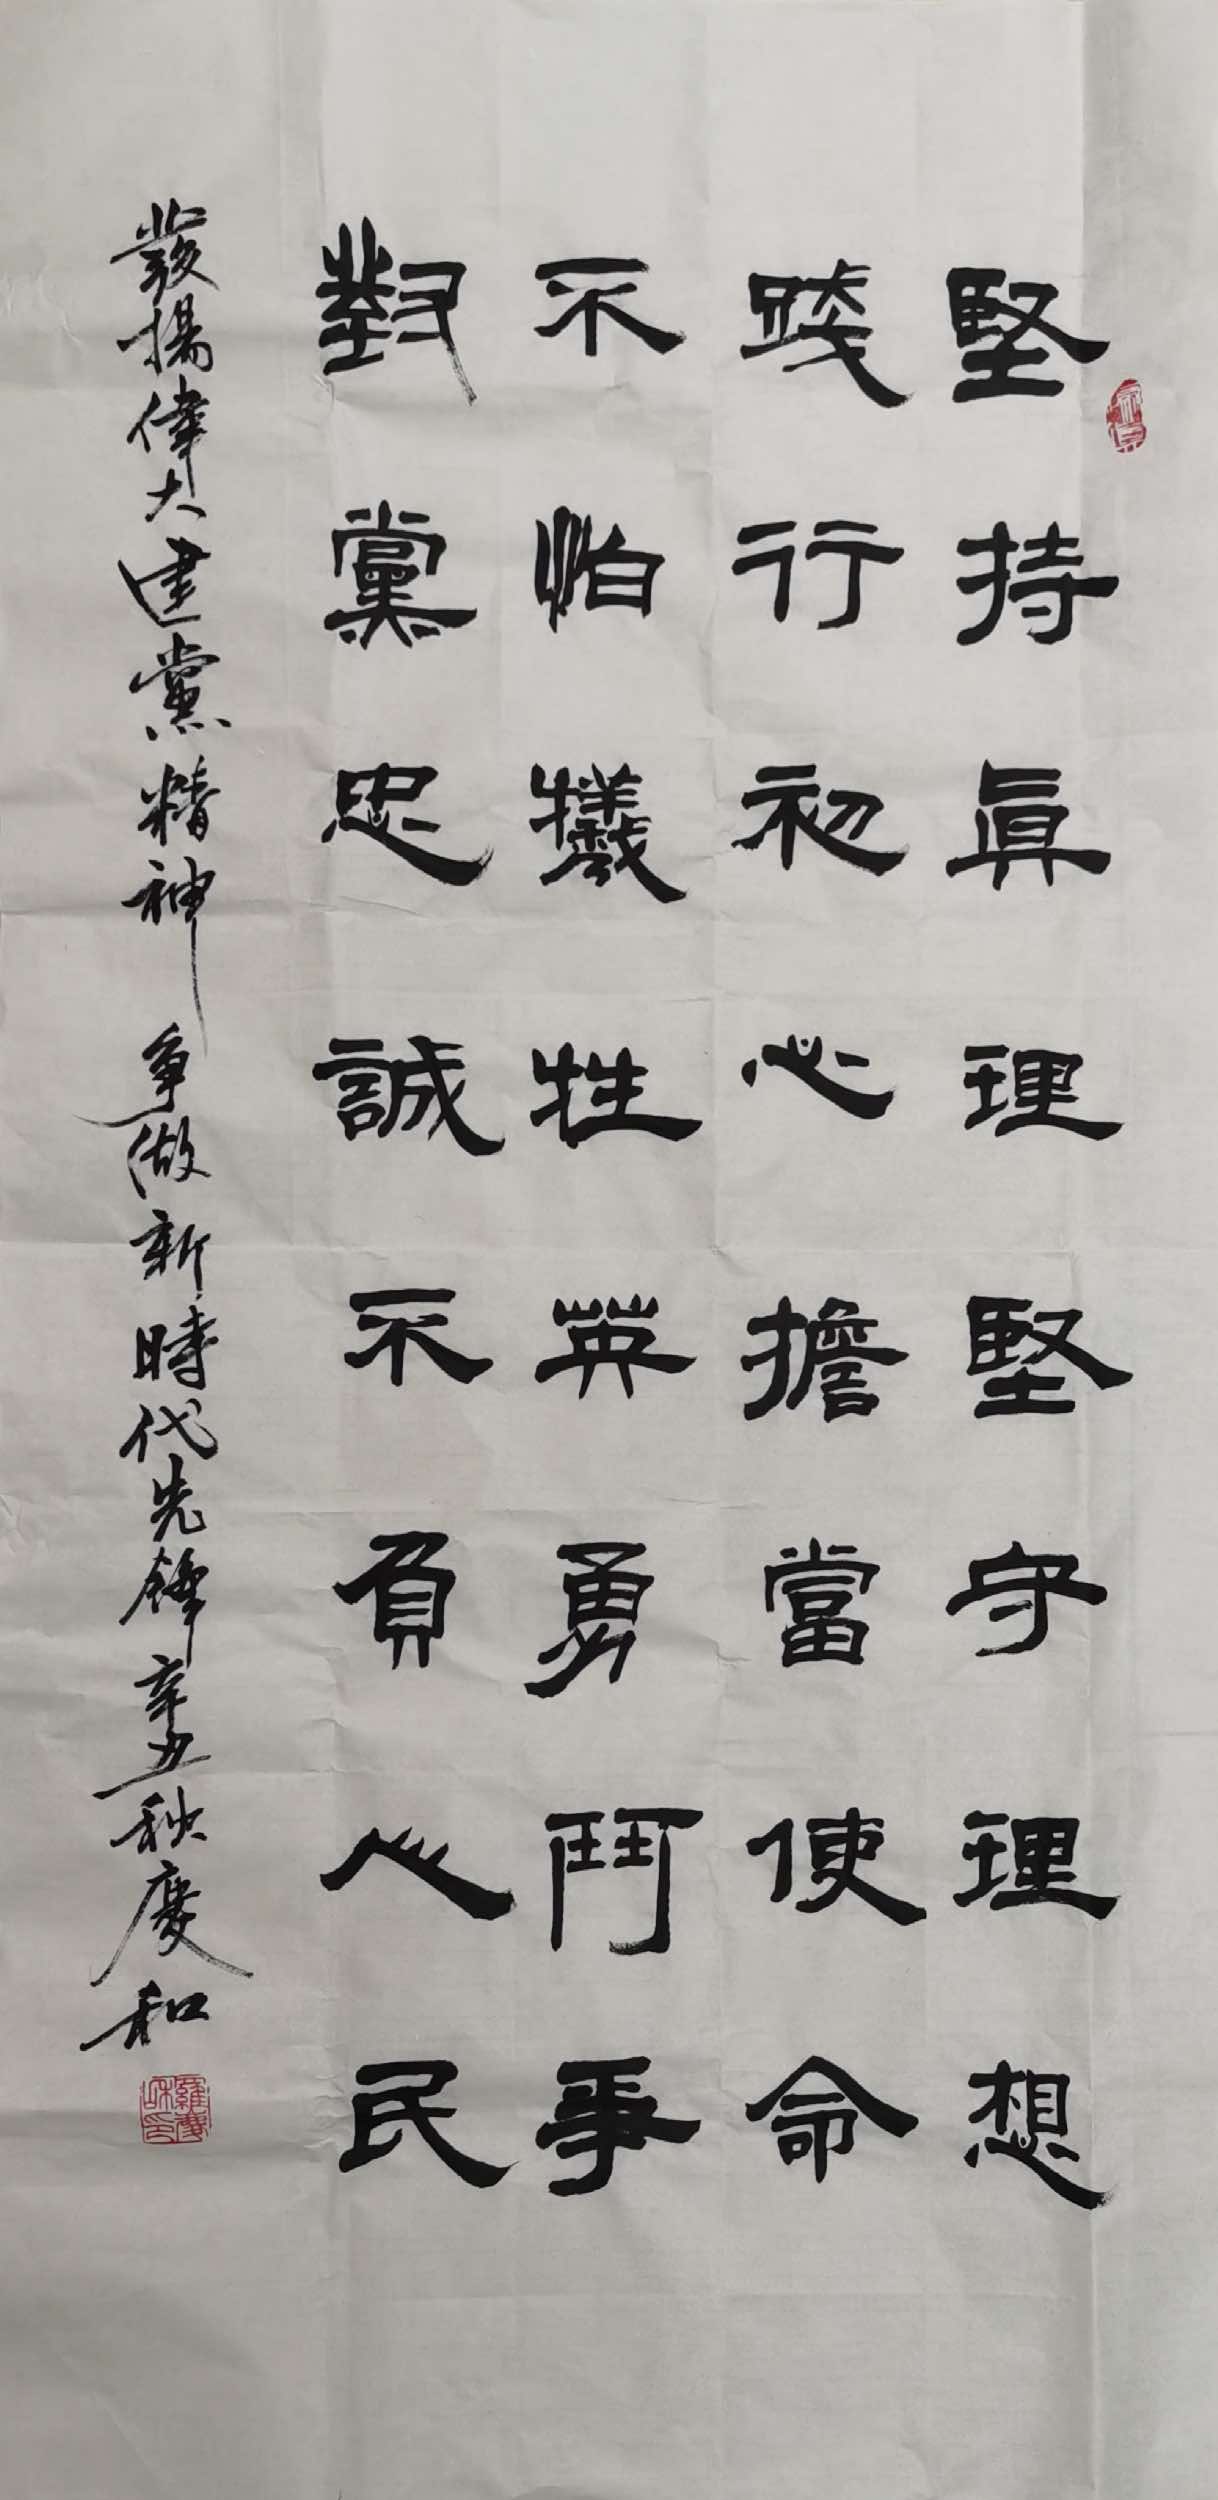 堅持真理堅守理想
踐行初心擔當使命
不怕犧牲英勇鬥爭
對黨忠誠不負人民
發揚偉大建黨精神 爭做新時代先鋒 辛丑秋慶和
羅慶和印